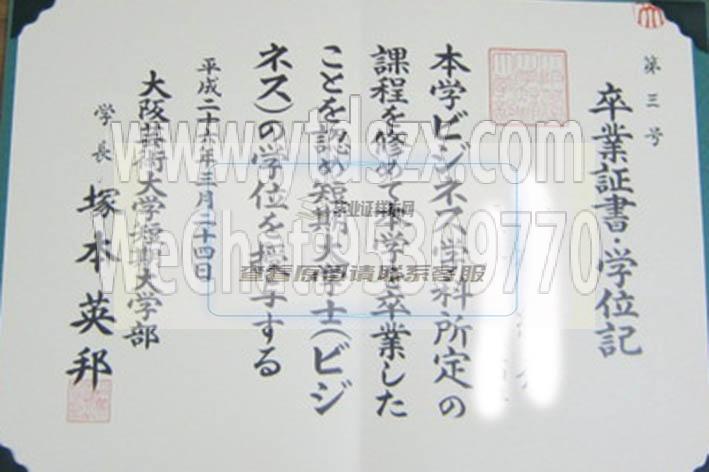 卒業証書・学位記
第三号
本学ビジネス学科所定の
課程を修めて本学を卒業した
ことを認め短期大学士(ビジ
ネス)の学位を授与する
平成二十六年三月二十四日
大阪芸術大学短期大学部
学長 塚本英邦
www.ytdszx.com
毕业证样本网
查看原图请联系客服